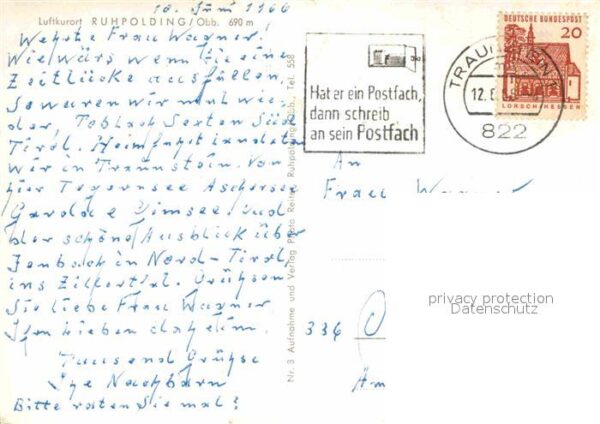 Luftkurort RUHPOLDING/Obb. 690 m
10. Juni 1966
Werte Frau Wagner!
Wie wärs wenn Sie eine
Zeitlücke ausfüllen.
So waren wir mal wie-
der, Toblach Sexten Süd
Tirol. Heimfahrt landeten
wir in Traunstein. Von
hier Tegernsee Achensee
und
der schöne Ausblick über
Jenbach in Nord-Tirol,
ins Zillertal. Grüßen
Sie liebe Frau Wagner
Ihren lieben daheim.
Tausend Grüße
Ihre Nachbarn
Bitte raten Sie mal?
Nr. 3 Aufnahme und Verlag Photo Reiter, Ruhpolding/Obb., Tel. 558
Hat er ein Postfach,
dann schreib
an sein Postfach
TRAUNSTEIN
12.6.
822
DEUTSCHE BUNDESPOST
20
LORSCH/HESSEN
An
Frau Wagner
336
Am
privacy protection
Datenschutz